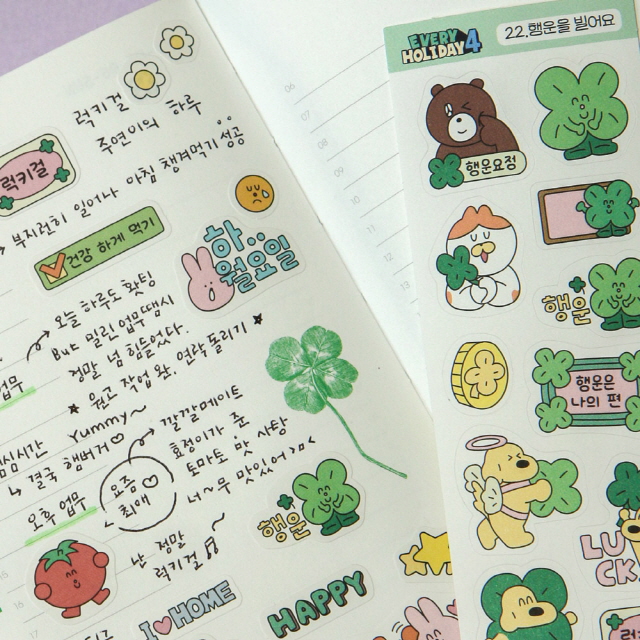 럭키걸
주연이의 하루
럭키걸
부지런히 일어나 아침 챙겨먹기 성공
건강 하게 먹기
하..
월요일
오늘 하루도 홧팅
But 밀린 업무땜시
정말 넘 힘들었다.
원고 작업 완. 연락 돌리기
업무
Yummy~
점심시간
↳ 결국 햄버거♡
요즘
최애
깔깔메이트
효정이가 준
토마토 맛 사탕
너~무 맛있어 >_<
오후 업무
행운
난 정말
럭키걸
I ♥ HOME
HAPPY
06
07
08
09
10
11
12
13
15
EVERY
HOLIDAY 4
22.행운을 빌어요
행운요정
행운
행운은
나의 편
LU
CK